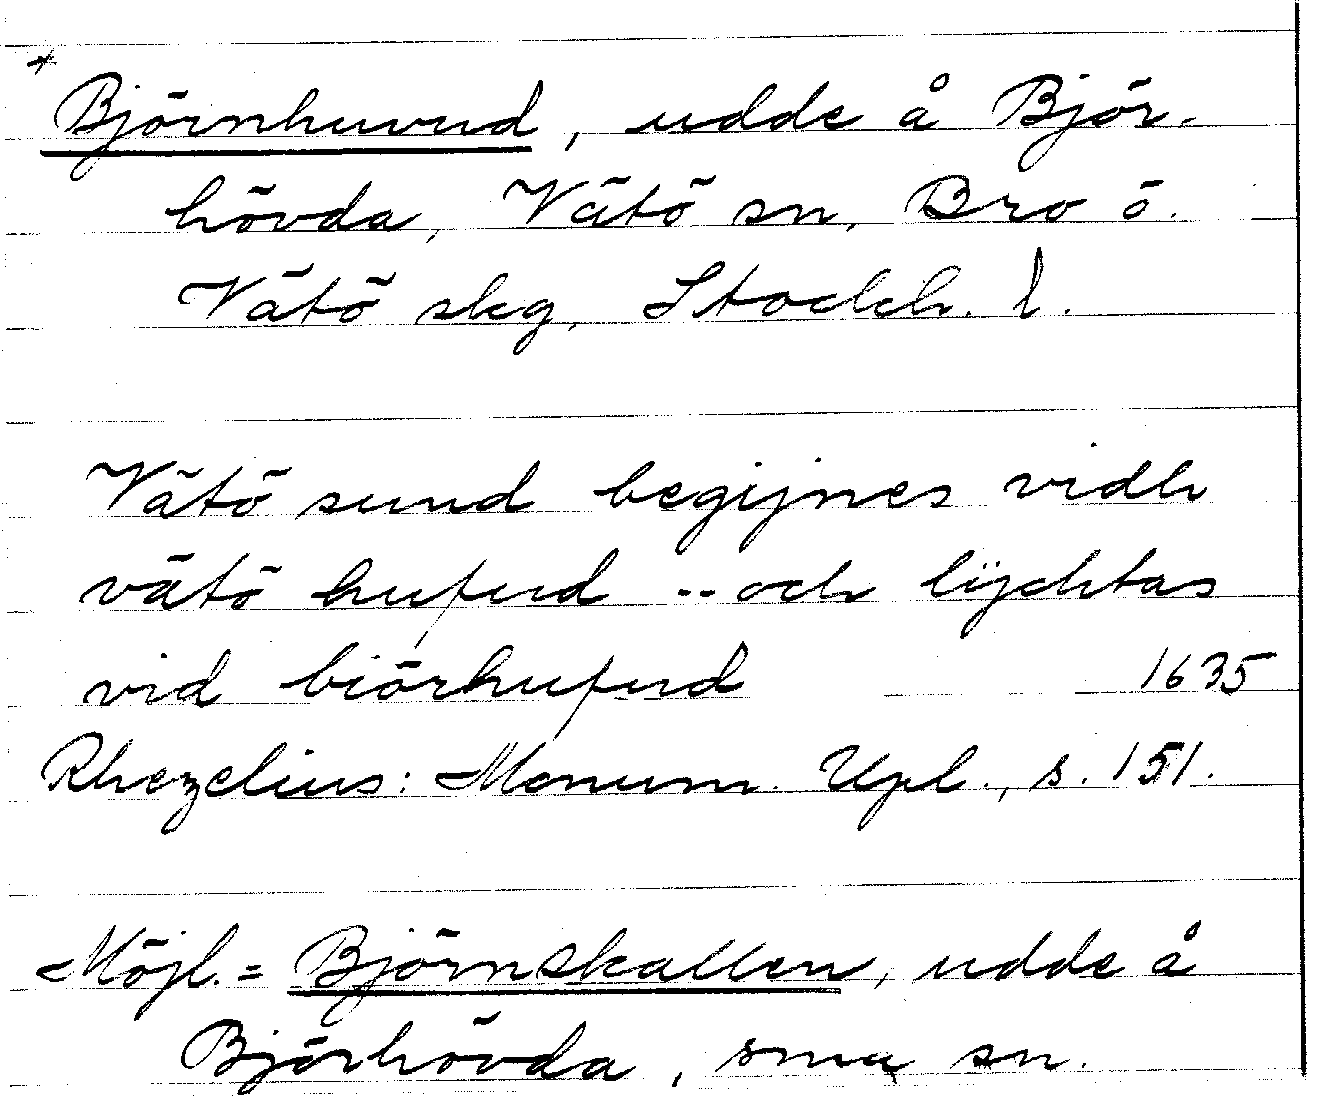 * Björnhuvud, udde å Björ-
hövda, Vätö sn, Bro o.
Vätö skg, Stockh. l.
Vätö sund begijnes vidh
vätö hufud .. och lÿchtas
vid biörhufud 1635
Rhezelius: Monum. Upl., s. 151.
Möjl. = Björnskallen, udde å
Björhövda, sma sn.